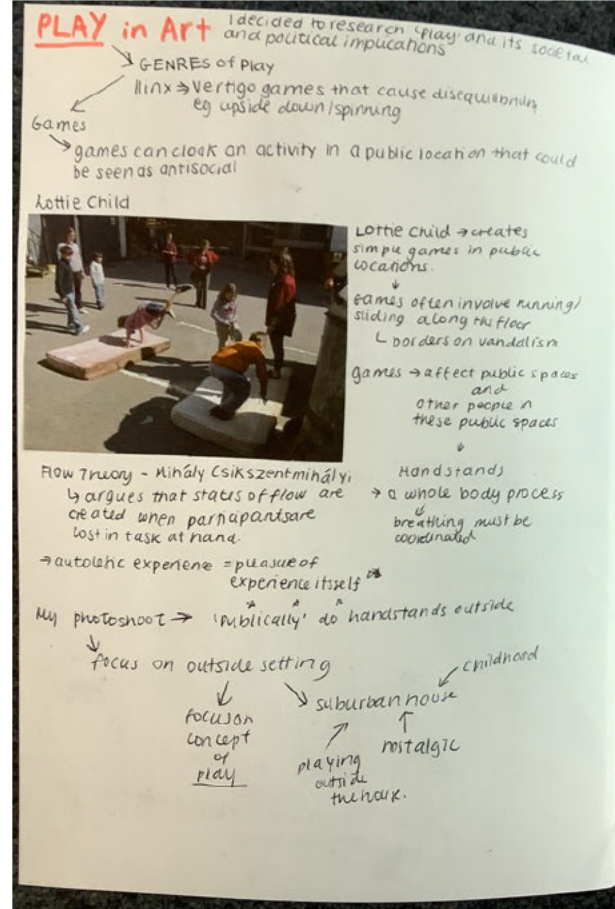 PLAY in Art
I decided to research 'play' and its societal
and political implications
GENRES of Play
Ilinx ⇒ Vertigo games that cause disequilibrium
eg upside down/spinning
Games
games can cloak an activity in a public location that could
be seen as antisocial
Lottie Child
Lottie Child → creates
simple games in public
locations.
Games often involve running/
sliding along the floor
borders on vandalism
games → affect public spaces
and
other people in
these public spaces
Handstands
→ a whole body process
breathing must be
coordinated
Flow Theory - Mihály Csikszentmihályi
↳ argues that states of flow are
created when participants are
lost in task at hand.
→ autoletic experience = pleasure of
experience itself
My photoshoot → 'publically' do handstands outside
focus on outside setting
focus on
concept
of
play
suburban house
childhood
nostalgic
playing
outside
the house.